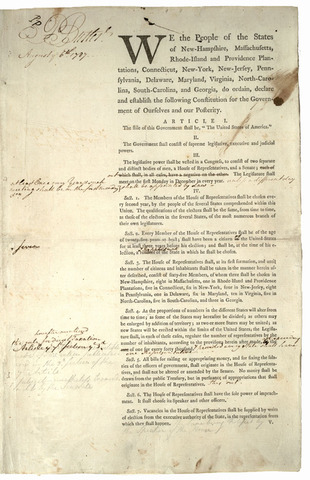 August 6th 1787.
WE the People of the States
of New-Hampshire, Massachusetts,
Rhode-Island and Providence Plan-
tations, Connecticut, New-York, New-Jersey, Penn-
sylvania, Delaware, Maryland, Virginia, North-Caro-
lina, South-Carolina, and Georgia, do ordain, declare
and establish the following Constitution for the Govern-
ment of Ourselves and our Posterity.
ARTICLE I.
The stile of this Government shall be, "The United States of America."
II.
The Government shall consist of supreme legislative, executive and judicial
powers.
III.
The legislative power shall be vested in a Congress, to consist of two separate
and distinct bodies of men, a House of Representatives, and a Senate; each of
which shall, in all cases, have a negative on the other. The Legislature shall
meet on the first Monday in December in every year.
IV.
Sect. 1. The Members of the House of Representatives shall be chosen eve-
ry second year, by the people of the several States comprehended within this
Union. The qualifications of the electors shall be the same, from time to time,
as those of the electors in the several States, of the most numerous branch of
their own legislatures.
Sect. 2. Every Member of the House of Representatives shall be of the age
of twenty-five years at least; shall have been a citizen of the United States
for at least three years before his election; and shall be, at the time of his e-
lection, a resident of the State in which he shall be chosen.
Sect. 3. The House of Representatives shall, at its first formation, and until
the number of citizens and inhabitants shall be taken in the manner herein af-
ter described, consist of sixty-five Members, of whom three shall be chosen in
New-Hampshire, eight in Massachusetts, one in Rhode-Island and Providence
Plantations, five in Connecticut, six in New-York, four in New-Jersey, eight
in Pennsylvania, one in Delaware, six in Maryland, ten in Virginia, five in
North-Carolina, five in South-Carolina, and three in Georgia.
Sect. 4. As the proportions of numbers in the different States will alter from
time to time; as some of the States may hereafter be divided; as others may
be enlarged by addition of territory; as two or more States may be united; as
new States will be erected within the limits of the United States, the Legisla-
ture shall, in each of these cases, regulate the number of representatives by the
number of inhabitants, according to the provisions herein after made, at the rate
of one for every forty thousand.
Sect. 5. All bills for raising or appropriating money, and for fixing the sala-
ries of the officers of government, shall originate in the House of Representa-
tives, and shall not be altered or amended by the Senate. No money shall be
drawn from the public Treasury, but in pursuance of appropriations that shall
originate in the House of Representatives.
Sect. 6. The House of Representatives shall have the sole power of impeach-
ment. It shall choose its Speaker and other officers.
Sect. 7. Vacancies in the House of Representatives shall be supplied by writs
of election from the executive authority of the State, in the representation from
which they shall happen.
V.